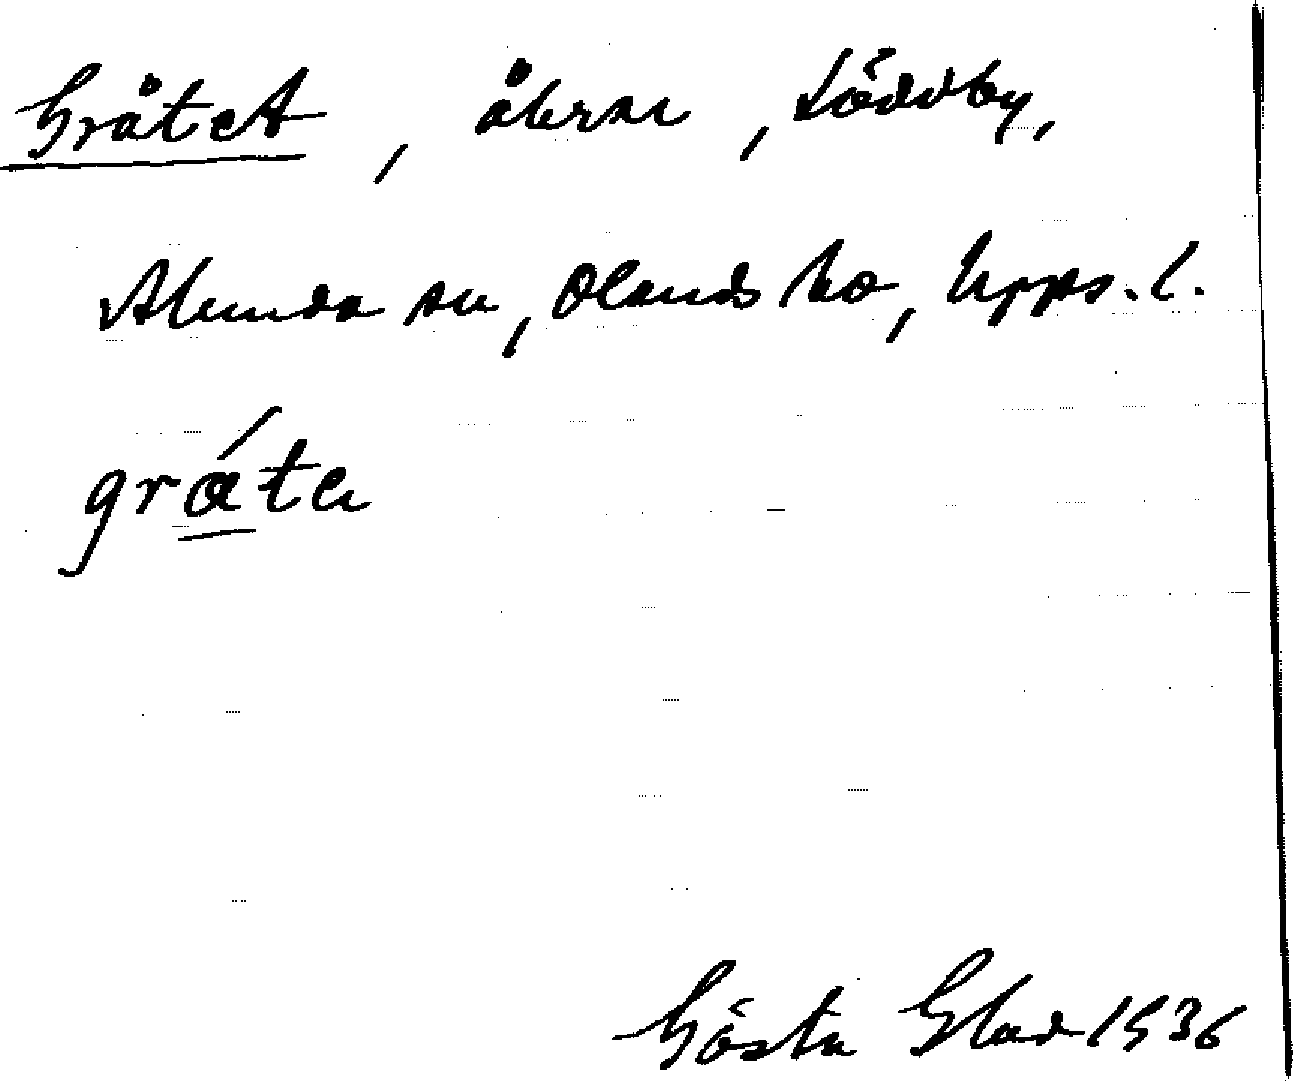 Gråtet, åkrar, Löddby,
Alunda sn, Olands hd, Upps. l.
gráta
Gösta Glad 1936